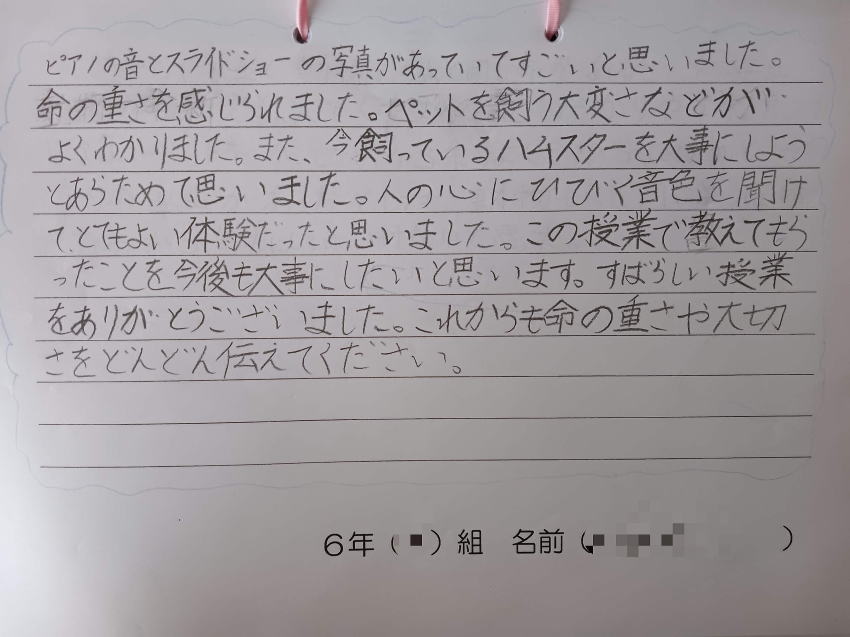 ピアノの音とスライドショーの写真があっていてすごいと思いました。
命の重さを感じられました。ペットを飼う大変さなどが
よくわかりました。また、今飼っているハムスターを大事にしよう
とあらためて思いました。人の心にひびく音色を聞け
て、とてもよい体験だったと思いました。この授業で教えてもら
ったことを今後も大事にしたいと思います。すばらしい授業
をありがとうございました。これからも命の重さや大切
さをどんどん伝えてください。
6年( )組 名前( )